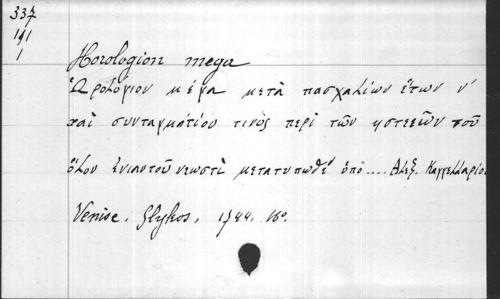 337
191
1
Horologion mega
Ὡρολόγιον μέγα μετὰ πασχαλίων ἐτῶν ν'
καὶ συνταγματίου τινὸς περὶ τῶν νηστειῶν τοῦ
ὅλου ἐνιαυτοῦ νεωστὶ μετατυπωθὲ ὑπὸ .... Ἀλεξ. Καγγελλαρίου
Venise. Glykos. 1744. 16º.